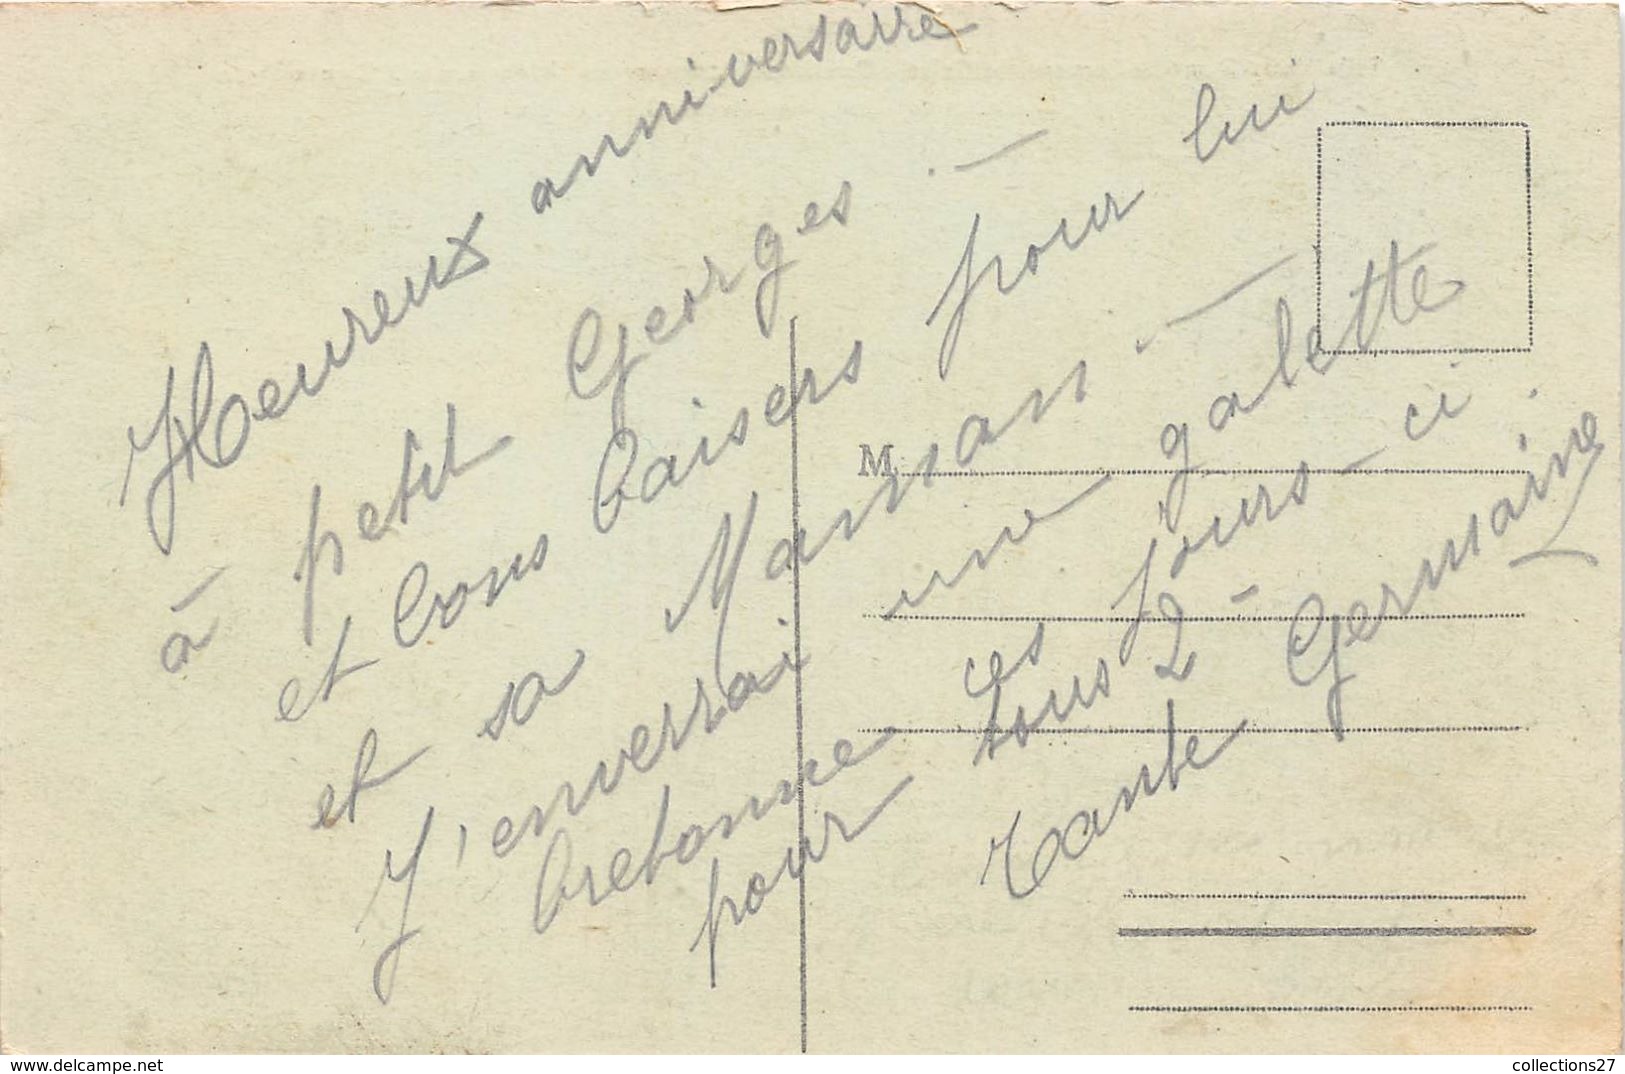 Heureux anniversaire
à petit Georges. —
et bons baisers pour lui
et sa Maman. —
J'enverrai une galette
bretonne ces jours-ci.
pour tous 2 -
Tante Germaine
M
www.delcampe.net
collections27